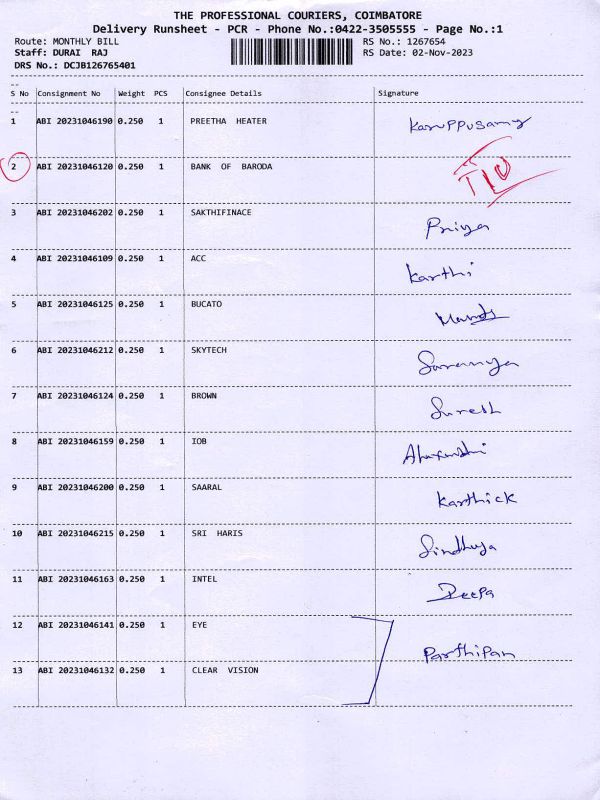 THE PROFESSIONAL COURIERS, COIMBATORE
Delivery Runsheet - PCR - Phone No.:0422-3505555 - Page No.:1
Route: MONTHLY BILL RS No.: 1267654
Staff: DURAI RAJ RS Date: 02-Nov-2023
DRS No.: DCJB126765401
S No Consignment No Weight PCS Consignee Details Signature
1 ABI 20231046190 0.250 1 PREETHA HEATER Karuppusamy
2 ABI 20231046120 0.250 1 BANK OF BARODA
3 ABI 20231046202 0.250 1 SAKTHIFINACE Priya
4 ABI 20231046109 0.250 1 ACC Karthi
5 ABI 20231046125 0.250 1 BUCATO
6 ABI 20231046212 0.250 1 SKYTECH Saranya
7 ABI 20231046124 0.250 1 BROWN Suresh
8 ABI 20231046159 0.250 1 IOB
9 ABI 20231046200 0.250 1 SAARAL Karthick
10 ABI 20231046215 0.250 1 SRI HARIS Sindhuja
11 ABI 20231046163 0.250 1 INTEL Deepa
12 ABI 20231046141 0.250 1 EYE
Parthipan
13 ABI 20231046132 0.250 1 CLEAR VISION